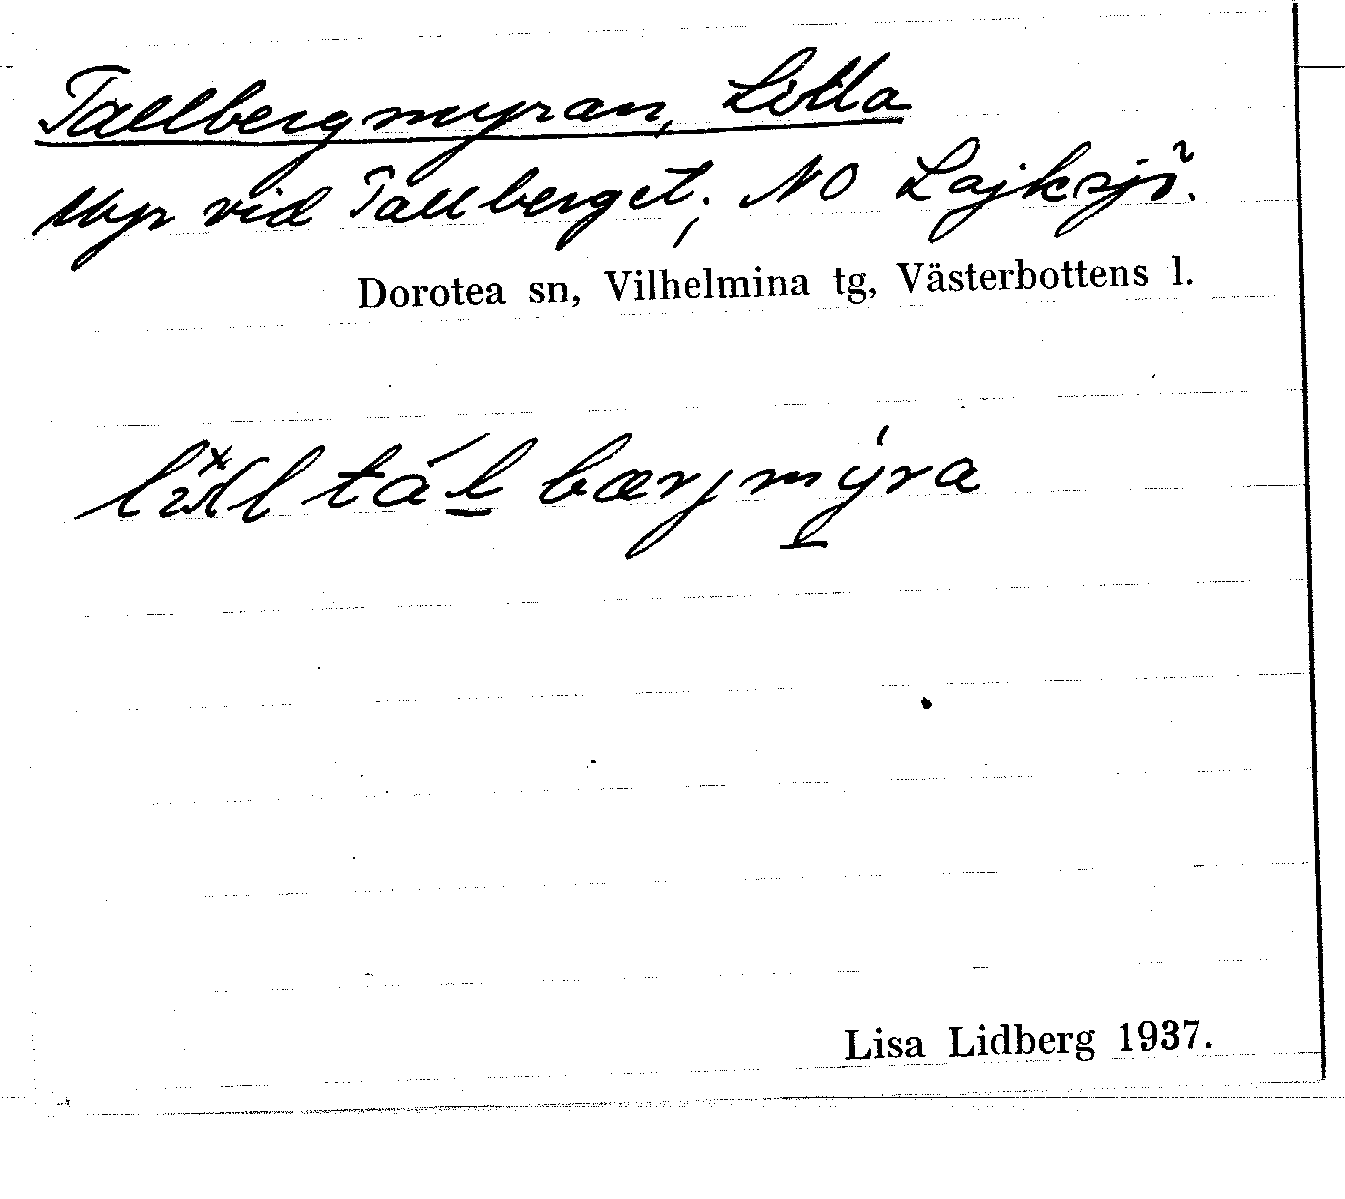 Tallbergmyran, Lilla
Myr vid Tallberget; NO Lajksjö.
Dorotea sn, Vilhelmina tg, Västerbottens l.
tálbærjmýra
Lisa Lidberg 1937.